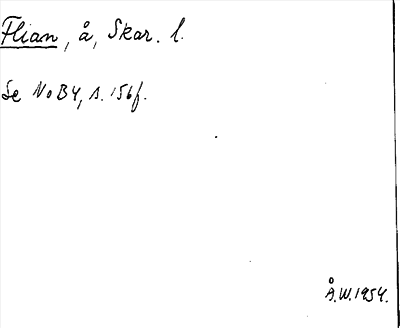 Flian, å, Skar. l.
Se NoB 4, s. 156f.
Å.W. 1954.